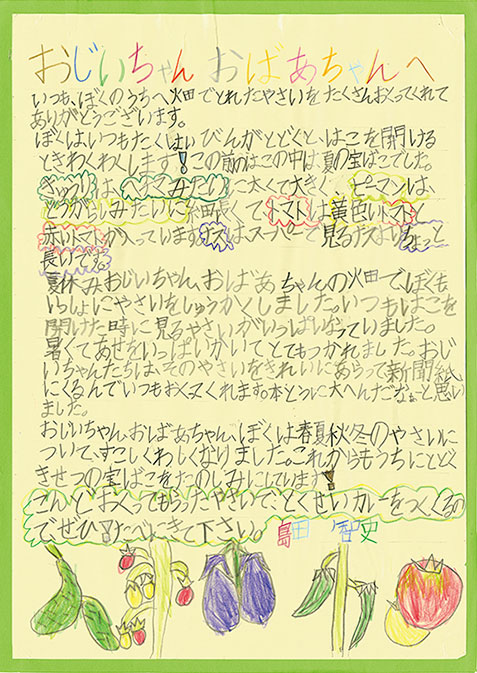 おじいちゃんおばあちゃんへ
いつも、ぼくのうちへ畑でとれたやさいをたくさんおくってくれて
ありがとうございます。
ぼくはいつもたくはいびんがとどくと、はこを開ける
ときわくわくします！この前のはこの中は、夏の宝ばこでした。
きゅうりは、ヘチマみたいに太くて大きく、ピーマンは、
とうがらしみたいに細長くて、トマトは黄色いトマトと
赤いトマトが入っています。ナスはスーパーで見るナスよりちょっと
長いです。
夏休みおじいちゃん、おばあちゃんの畑で、ぼくも
いっしょにやさいをしゅうかくしました。いつもはこを
開けた時に見るやさいがいっぱいなっていました。
暑くてあせをいっぱいかいてとてもつかれました。おじ
いちゃんたちは、そのやさいをきれいにあらって新聞紙
にくるんでいつもおくってくれます。本とうに大へんだなぁと思い
ました。
おじいちゃん、おばあちゃん、ぼくは春夏秋冬のやさいに
ついて、すこしくわしくなりました。これからもうちにとどく
きせつの宝ばこをたのしみにしています！
こんど おくってもらったやさいで、とくせいカレーをつくるの
で、ぜひたべにきて下さい。島田 智史